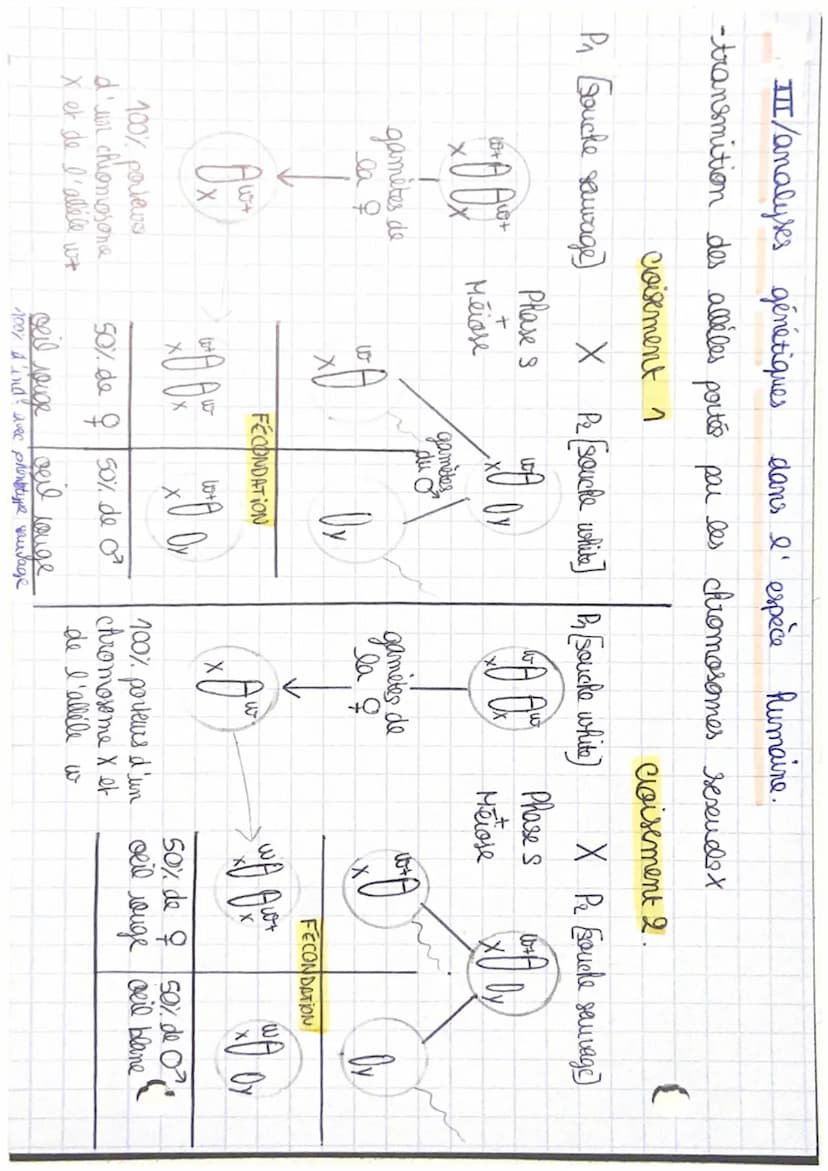 III/analyses génétiques dans l'espèce humaine.
-transmition des allèles portés par les chromosomes sexeudex
croisement 1
P1 [souche sauvage] X P2 [souche white]
w+ w+
X X
w
X Y
Phase S
+
Méiose
gamètes de
la ♀
gamètes
du ♂
w+
X
w
X
Y
FÉCONDATION
w+ w
X X
w+
X Y
100% porteurs
d'un chromosome
X et de l'allèle w+
50% de ♀
oeil rouge
50% de ♂
oeil rouge
100% d'ind° avec phénotype sauvage
croisement 2.
P1 [souche white] X P2 [souche sauvage]
w w
X X
w+
X Y
Phase S
+
Méiose
gamètes de
la ♀
w
X
w+
X
Y
FÉCONDATION
w w+
X X
w
X Y
100% porteurs d'un
chromosome X et
de l'allèle w
50% de ♀
oeil rouge
50% de ♂
oeil blanc